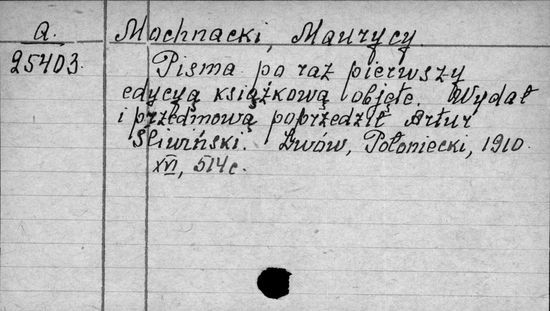 a. Mochnacki, Maurycy.
25403. Pisma po raz pierwszy
edycyą książkową objęte. Wydał
i przedmową poprzedził Artur
Śliwiński. Lwów, Połoniecki, 1910.
XVI, 514 c.